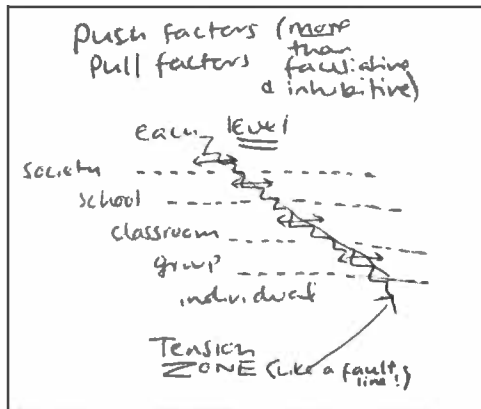 Push factors (more
than
Pull factors faciliating
& inhibitive)
each level
society
school
classroom
group
individual
Tension
ZONE (Like a fault
line!)